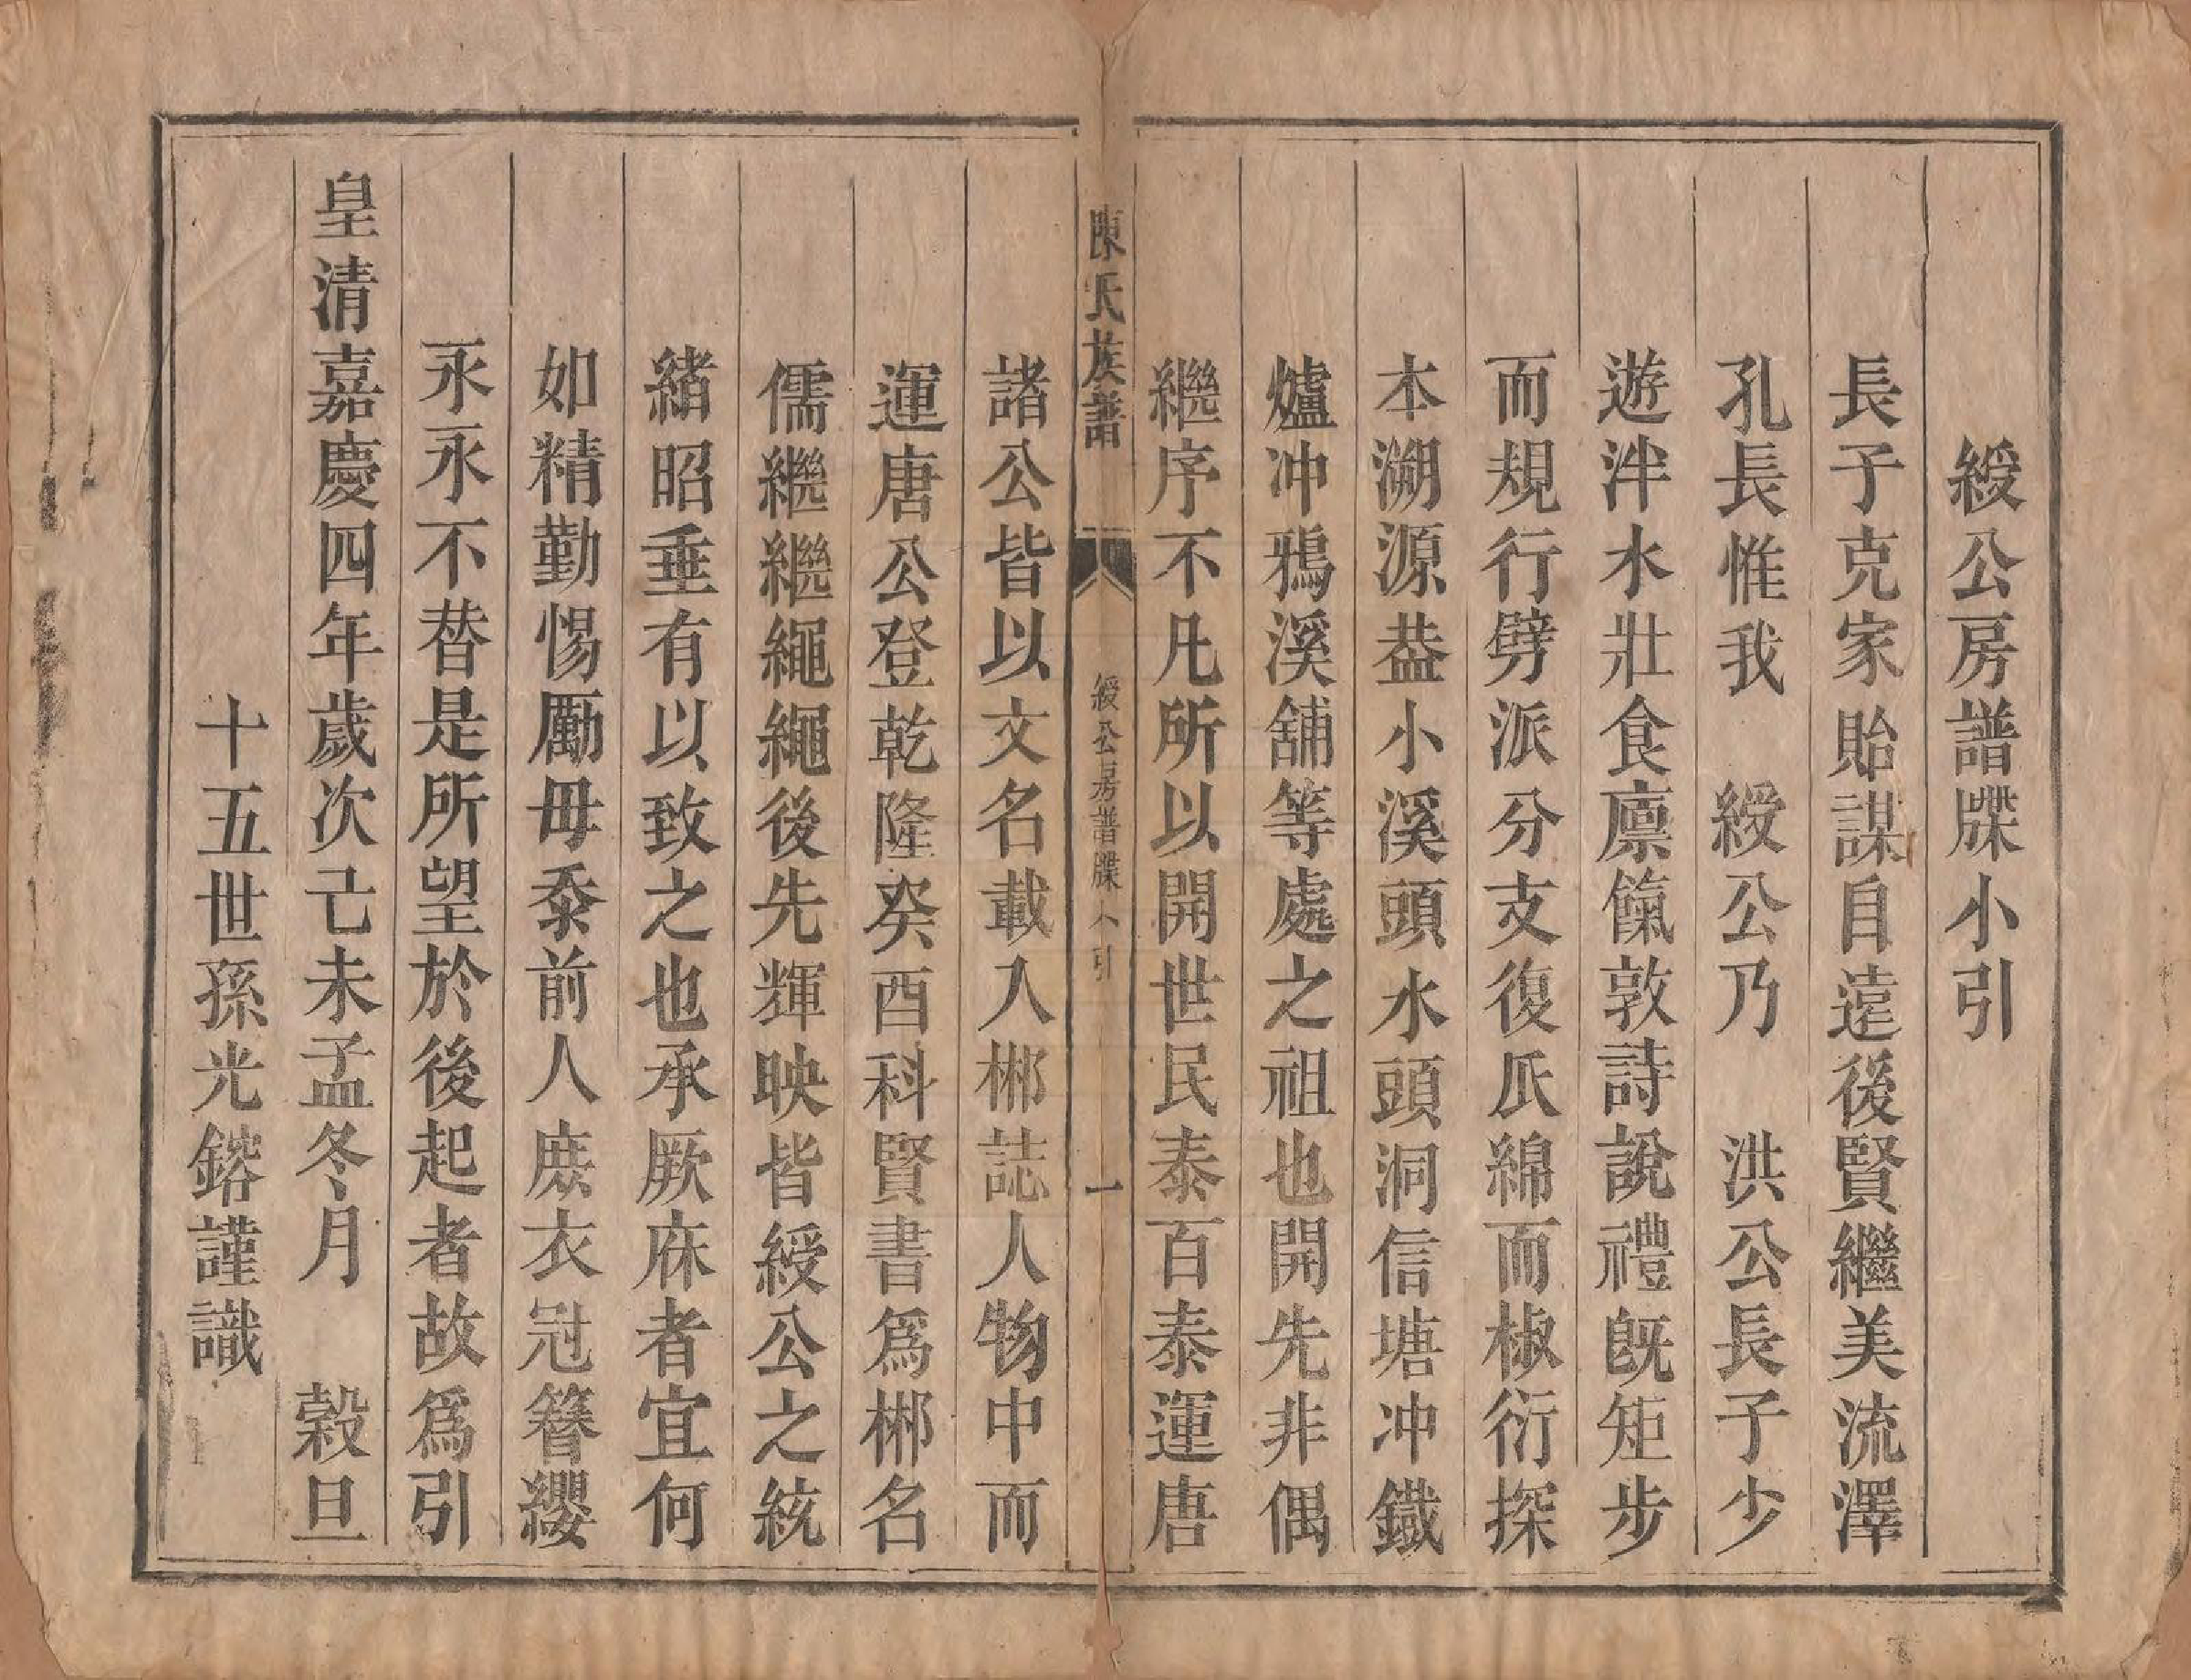 綬公房譜牒小引
長子克家貽謀自遠後賢繼美流澤
孔長惟我　綬公乃　洪公長子少
遊泮水壯食廪餼敦詩說禮旣矩步
而規行劈派分支復瓜綿而椒衍探
本溯源葢小溪頭水頭洞信塘冲鐵
爐冲鴉溪舖等處之祖也開先非偶
繼序不凡所以開世民泰百泰運唐
陳氏族譜　綬公房譜牒小引　一
諸公皆以文名載入郴誌人物中而
運唐公登乾隆癸酉科賢書爲郴名
儒繼繼繩繩後先輝映皆綬公之統
緒昭垂有以致之也承厥庥者宜何
如精勤惕勵毋忝前人庶衣冠簪纓
永永不替是所望於後起者故爲引
皇清嘉慶四年歲次己未孟冬月　穀旦
十五世孫光鎔謹識